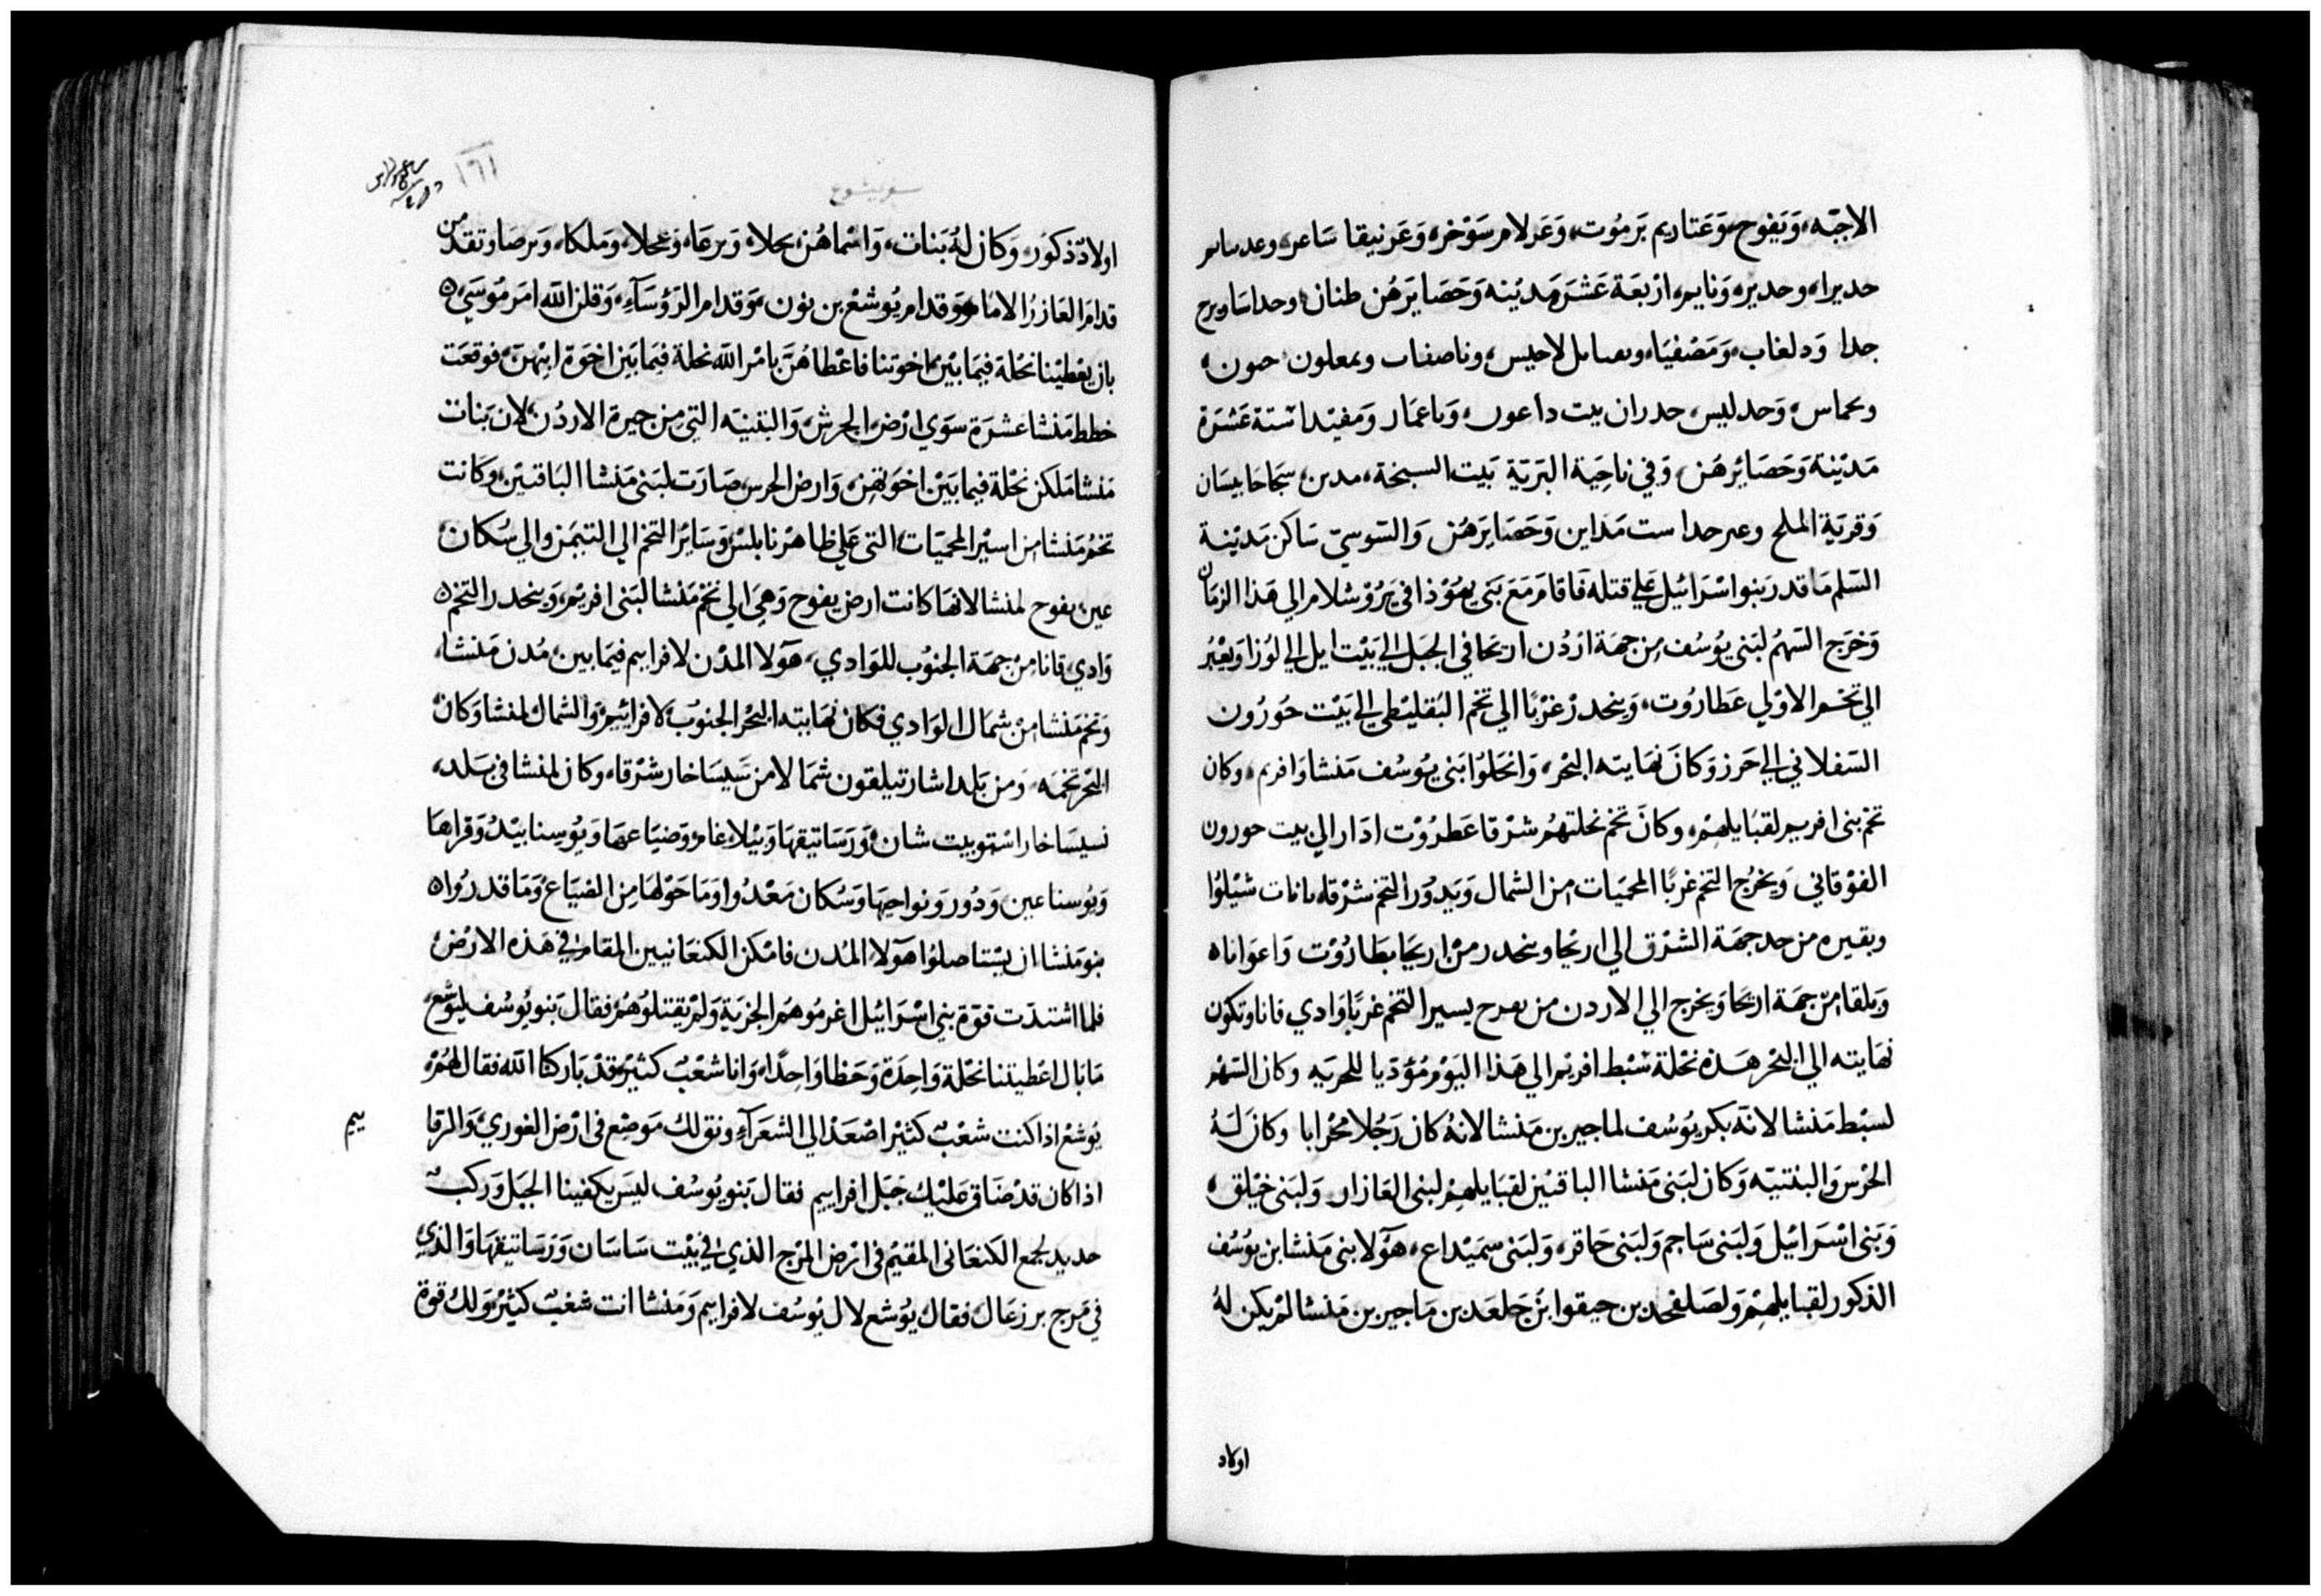 الاجبّه، وَيَفوح، وَعَتاريم بَرمُوت، وَعَرلام سَوْخر، وَعَرنيقا سَاعر،
حديرا، وحديره وَنايم، ارْبعَة عَشرَ مَديْنه وَحَصَايرَهُن طنان وحداسَاويرح
جدا وَدلغاب، وَمَصْفيَا، لاحيس، وناصفاب وبمعلون حمون،
وبحماس، وَحدليس، حدران بيت داعون، وَباعمَار وَمفيْدا سْتة عَشرَة
مَديْنة وَحَصَايْرهَن، وَفي ناحِيَة البَريّة بَيت السبخة، مدبن، سجَاحَابيسَان
وَقريَة الملح وعبرحدا ست مَداين وَحَصَايرَهُن وَالسَوسيّ سَاكن مَديْنة
السَلم مَا قدر بَنوا اسْرَائيل عَلي قتله فَاقامَ مَعَ بَني يهُوْذا في يَرُوْشلام الي هَذا الزمَان
وَخرَج السَهمُ لبَني يوُسُف مِن جهَة ارْدُن اريحَا في الجبَل الي بَيْت ايل الي لوُزا وَيعْبُر
الي تخم الاوْلي عَطارُوت، وَينحَدرْ غرْبًا الي تخم البُقليْطي الي بَيْت حوُرُون
السَفلاني الي حَرز وَكانَ نهَايته البَحْر، وَانحَلوُا بَني يوُسُف مَنشا وَافريم، وكان
تخم بني افريم لقبَايلهِمْ، وكانَ تخم نحلتهمُ شرْقا عَطرُوْت ادَار الي بيت حورون
الفوْقاني وَيخرُج التخم غربًا المحميَات من الشمال وَيَدوُر التخم شرْقا بانات شيْلوُا
وبقيره من حد جهَة الشرْق الي اريْحا وينحدر منْ اريحَا بطَارُوْت وَاعوَاناه
وَيلقا منْ جهَة اريحَا وَيخرج الي الاردن من يعرح يسير التخم غربًا وَادي قانا وتكون
نهَايته الي البَحْر هَذه نحْلة سْبط افريم الي هَذا اليَوْم مُؤدّيا للحريه وكان السَهْم
لسبْط مَنشا لانّه بكر يوُسُف لماجير بن مَنشا لانهُ كان رَجُلا محْرابا وكانَ لَهُ
الحرْس وَالبثنيّه وَكان لبَني مَنشا الباقيْن لقبَايلهمْ لبني العَازار، وَلبَني خيْلق،
وَبَني اسْرَائيل وَلبَني سَاجم وَلبَني حَافر، وَلبَني سمَيْداع، هوَلا بني مَنشا بن يوُسُف
الذكور لقبايلهِمْ وَلصَلفحد بن حيفوا ابْن جَلعَد بن مَاجير بن مَنشا لمْ يكن لهُ
اولاد
١٦١
سفر يشوع
اولادْ ذكوُر، وَكان لهُ بَنات، وَاسْماهُن، محلا، وَبرعَا، وَعجلا، وَملكا، وَبرصَا وتقدمن
قدامَ العَازرُ الامَام وَقدام يُوشعْ بن نون، وَقدام الرَوُسَآء، وَقلن اللّه امَر مُوسَي ه
بان يعْطيْنا نحْلة فيمَا بَيْن اخوتنا فاعْطاهُنَّ بامْر اللّه نحلة فيمَا بَيْن اخوَة ابيْهنّ، فوَقعَت
خطط مَنشا عشرَة سوَي ارْض الحرش، وَالبثنيّه التي مِن جيرة الاردُن لان بَنات
مَنشا مَلكن نحْلة فيما بَيْن اخوَتهن، وَارض الحرس صَارَت لبَني مَنشا البَاقيْن، وَكانت
تخمُ مَنشا من اسيْر المحميَات التي عَلي ظاهرْ نابلسْ وَسَايرْ التخم الي التيمَن والي سُكان
عين، يفوح لمنشا لانهَا كانت ارض يفوح وَهيَ الي تخم مَنشا لبَني افريْم، وَينحدر التخم ه
وَادي، قانا، منْ جهَة الجنوُب للوَادي، هوَلا المدْن لافرايم فيمَا بين، مُدن مَنشا،
وَتخم مَنشا منْ شمَال الوَادي فكان نهَايته البَحْر الجنوُب، لافرايْم وَالشمال لمنشا وَكان
البَحْر تخمَه، وَمن بَلد اشار تيلقون شمَالا من نَسيسَاخار شرْقا، وكان لمنشا في بَلد،
نسيسَاخار اسْتو بيت شان، وَرَسَاتيقهَا وَبَيْلاءعَام وَضيَاعهَا وَيوُسِنا بيْدُ وَقراهَا
وَيوُسنا عين، وَدُور وَنواحيهَا وَسُكان مَعْدُوا وَمَا حَوْلهَا مِن الضيَاع، وَمَا قدرُواه
بنو مَنشا ان يسْتاصلوُا هوَلاء المُدن فامْكن الكنعَانيين المقام في هَذه الارْض
فلما اشتدّت قوّة بني اسْرَائيل اغرمُوهمُ الجزيَة وَلمْ يقتلوُهمْ، فقال بَنو يُوسُف ليَوشع،
مَا بَال اعْطيتنا نحْلة وَاحِدَة وَحَظا وَاحِدًا، وَانا شعْبٌ كثيرْ قدْ بَاركنا اللّه فقال لهُمْ
يُوشعْ اذا كنت شعْبٌ كثيْر اصْعَدْ الي الشعَرآء ونق لك مَوضِع في ارْض الغوري، وَالرفا
ييم
اذا كان قدْ ضَاق عَليْك جَبَل افرايم فقال بَنو يوُسُف ليسَ يكفينا الجبَل وَركبٌ
حديد لجمع الكنعَاني المقيْم في ارْض المَرْج الذي في بَيْت سَاسَان وَرَسَاتيقهَا وَالذي
في مَرج برزعَال، فقال يوُشع لال يوُسُف لافرايم وَمَنشا انت شعْبٌ كثيرْ وَلك قوة